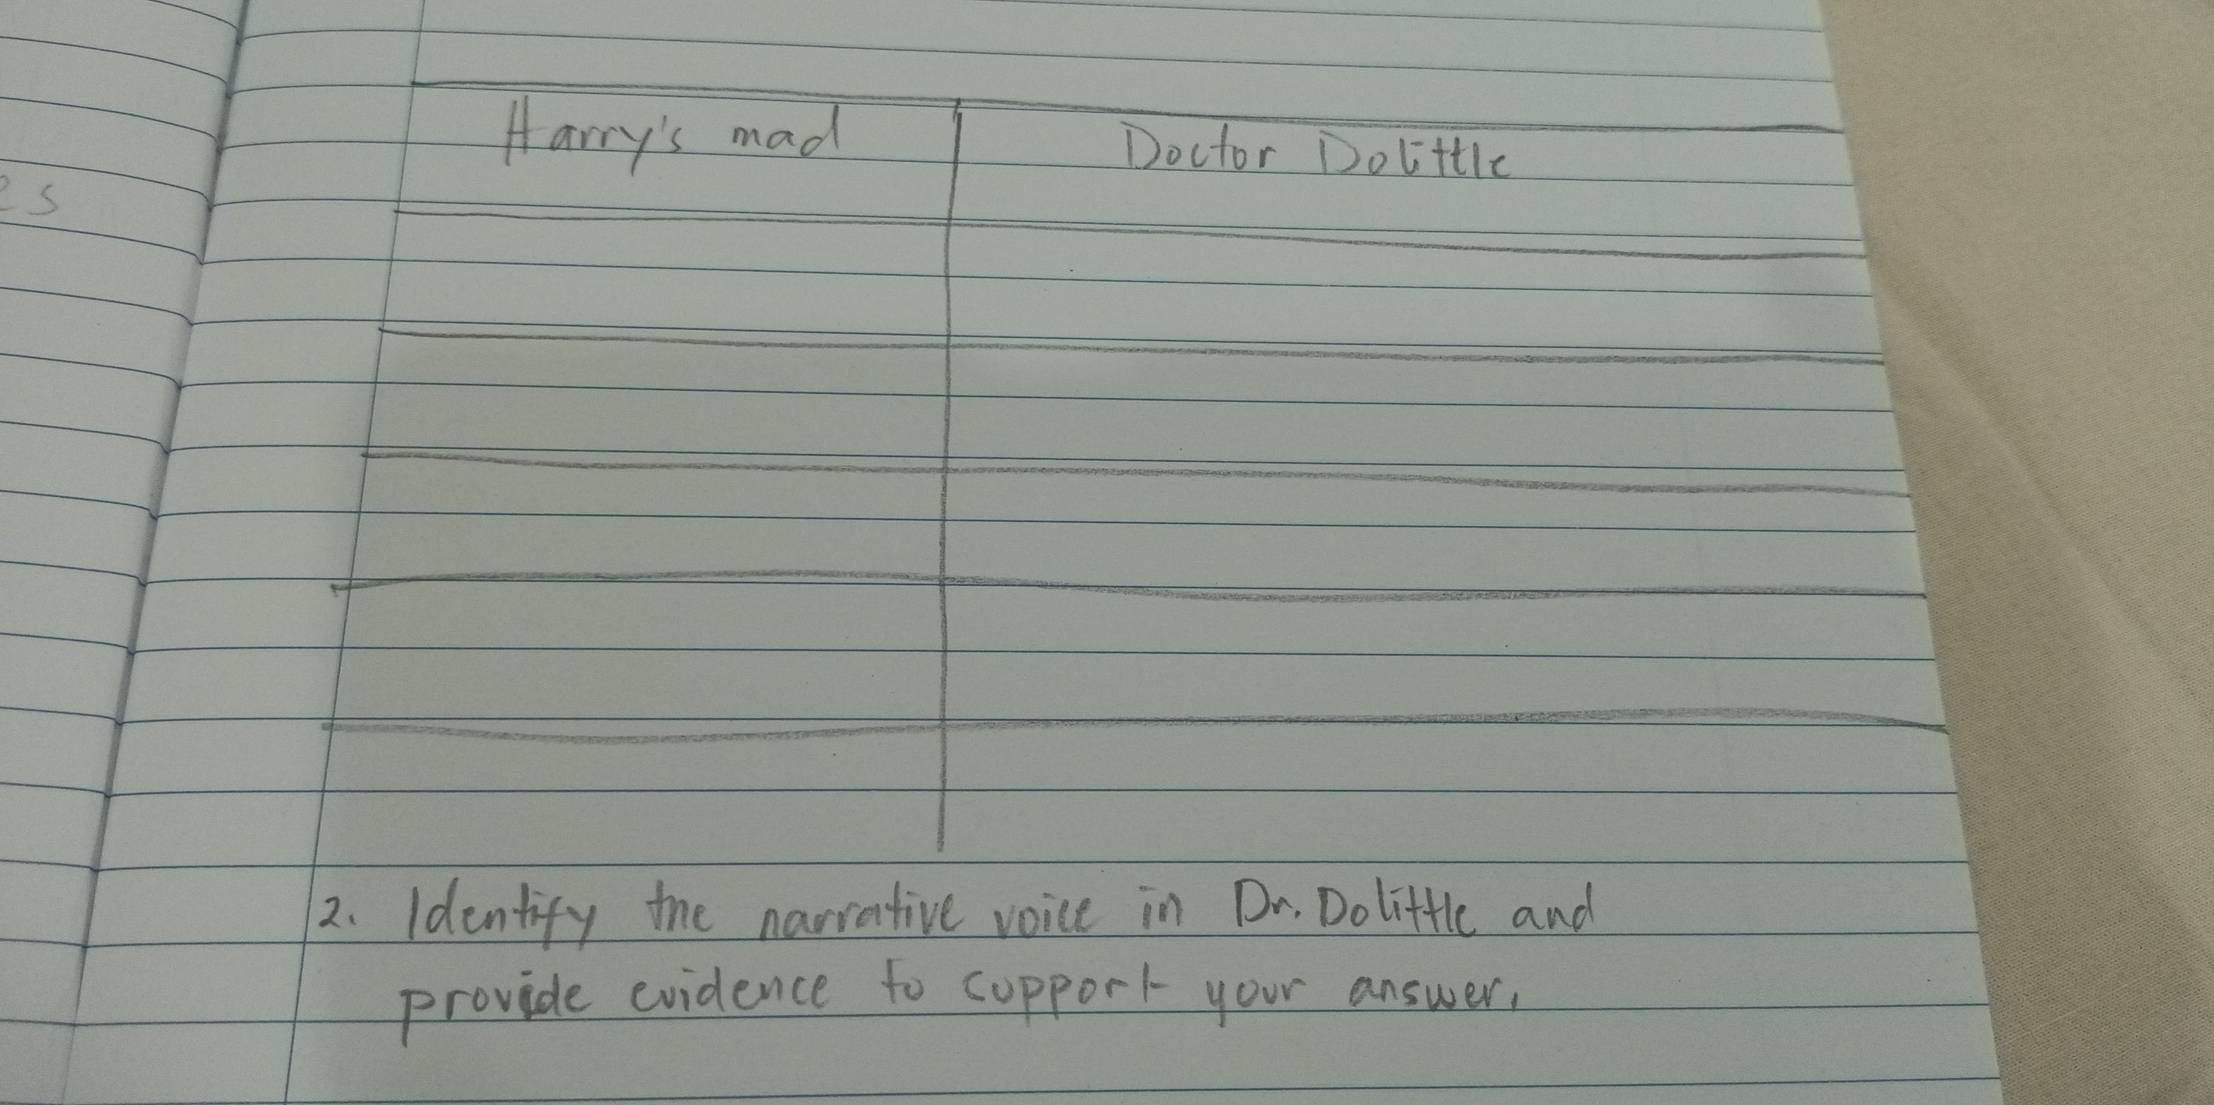 es
Harry's mad Doctor Dolittle
2. Identify the narrative voice in Dr. Dolittle and
provide evidence to support your answer,